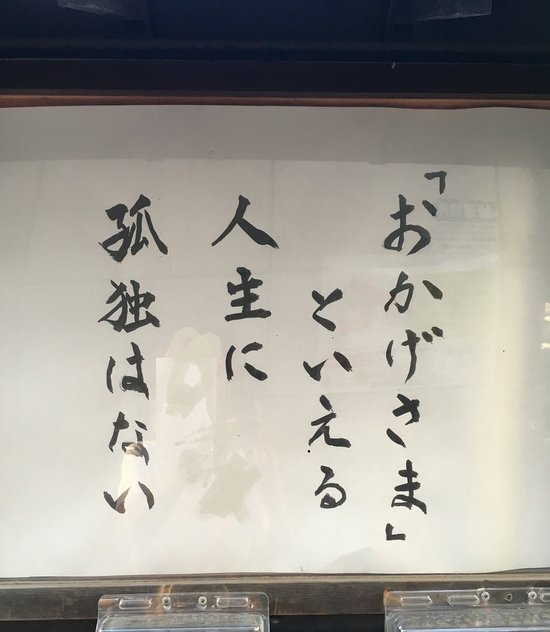 「おかげさま」
といえる
人生に
孤独はない